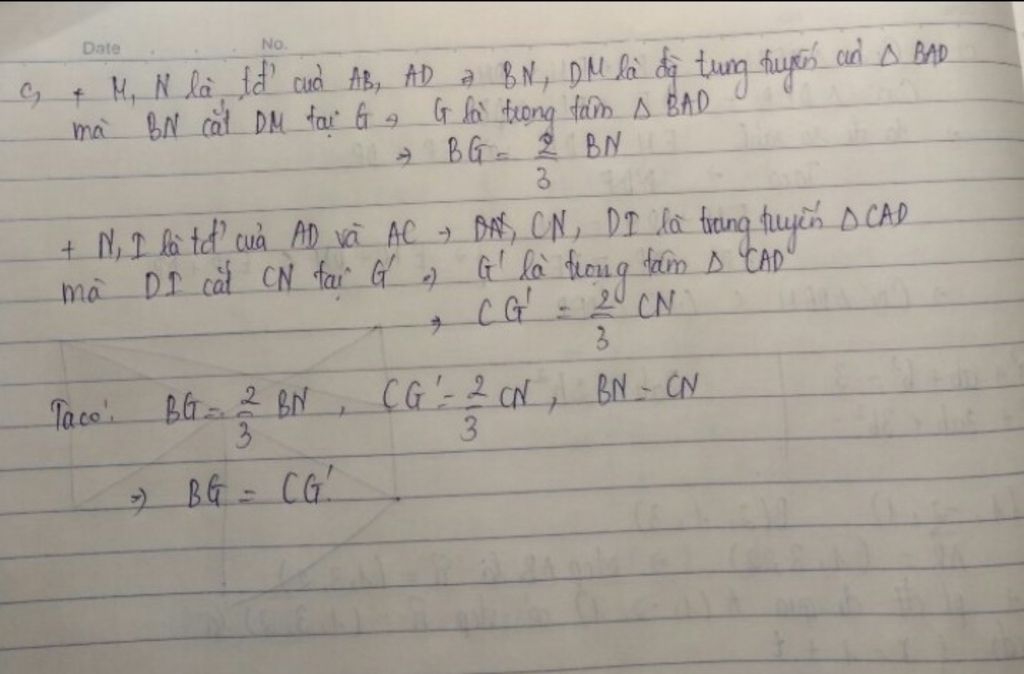 Date No.
c, + M, N là tđ' cuả AB, AD => BN, DM là đg tung tuyến cuả Δ BAD
mà BN cắt DM tại G => G là trọng tâm Δ BAD
=> BG = 2/3 BN
+ N, I là tđ' cuả AD và AC => CN, DI là trung tuyến Δ CAD
mà DI cắt CN tại G' => G' là trọng tâm Δ CAD
=> CG' = 2/3 CN
Ta có: BG = 2/3 BN, CG' = 2/3 CN, BN = CN
=> BG = CG'